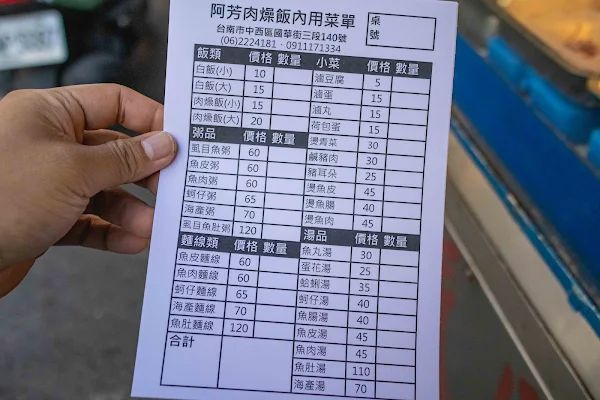 阿芳肉燥飯內用菜單
桌號
台南市中西區國華街三段140號
(06)2224181、0911171334
飯類 價格 數量
白飯(小) 10
白飯(大) 15
肉燥飯(小) 15
肉燥飯(大) 20
粥品 價格 數量
虱目魚粥 60
魚皮粥 60
魚肉粥 60
蚵仔粥 65
海產粥 70
虱目魚肚粥 120
麵線類 價格 數量
魚皮麵線 60
魚肉麵線 60
蚵仔麵線 65
海產麵線 70
魚肚麵線 120
合計
小菜 價格 數量
滷豆腐 5
滷蛋 15
滷丸 15
荷包蛋 15
燙青菜 30
鹹豬肉 30
豬耳朵 25
燙魚皮 45
燙魚腸 40
燙魚肉 45
湯品 價格 數量
魚丸湯 30
蛋花湯 25
蛤蜊湯 35
蚵仔湯 40
魚腸湯 40
魚皮湯 45
魚肉湯 45
魚肚湯 110
海產湯 70